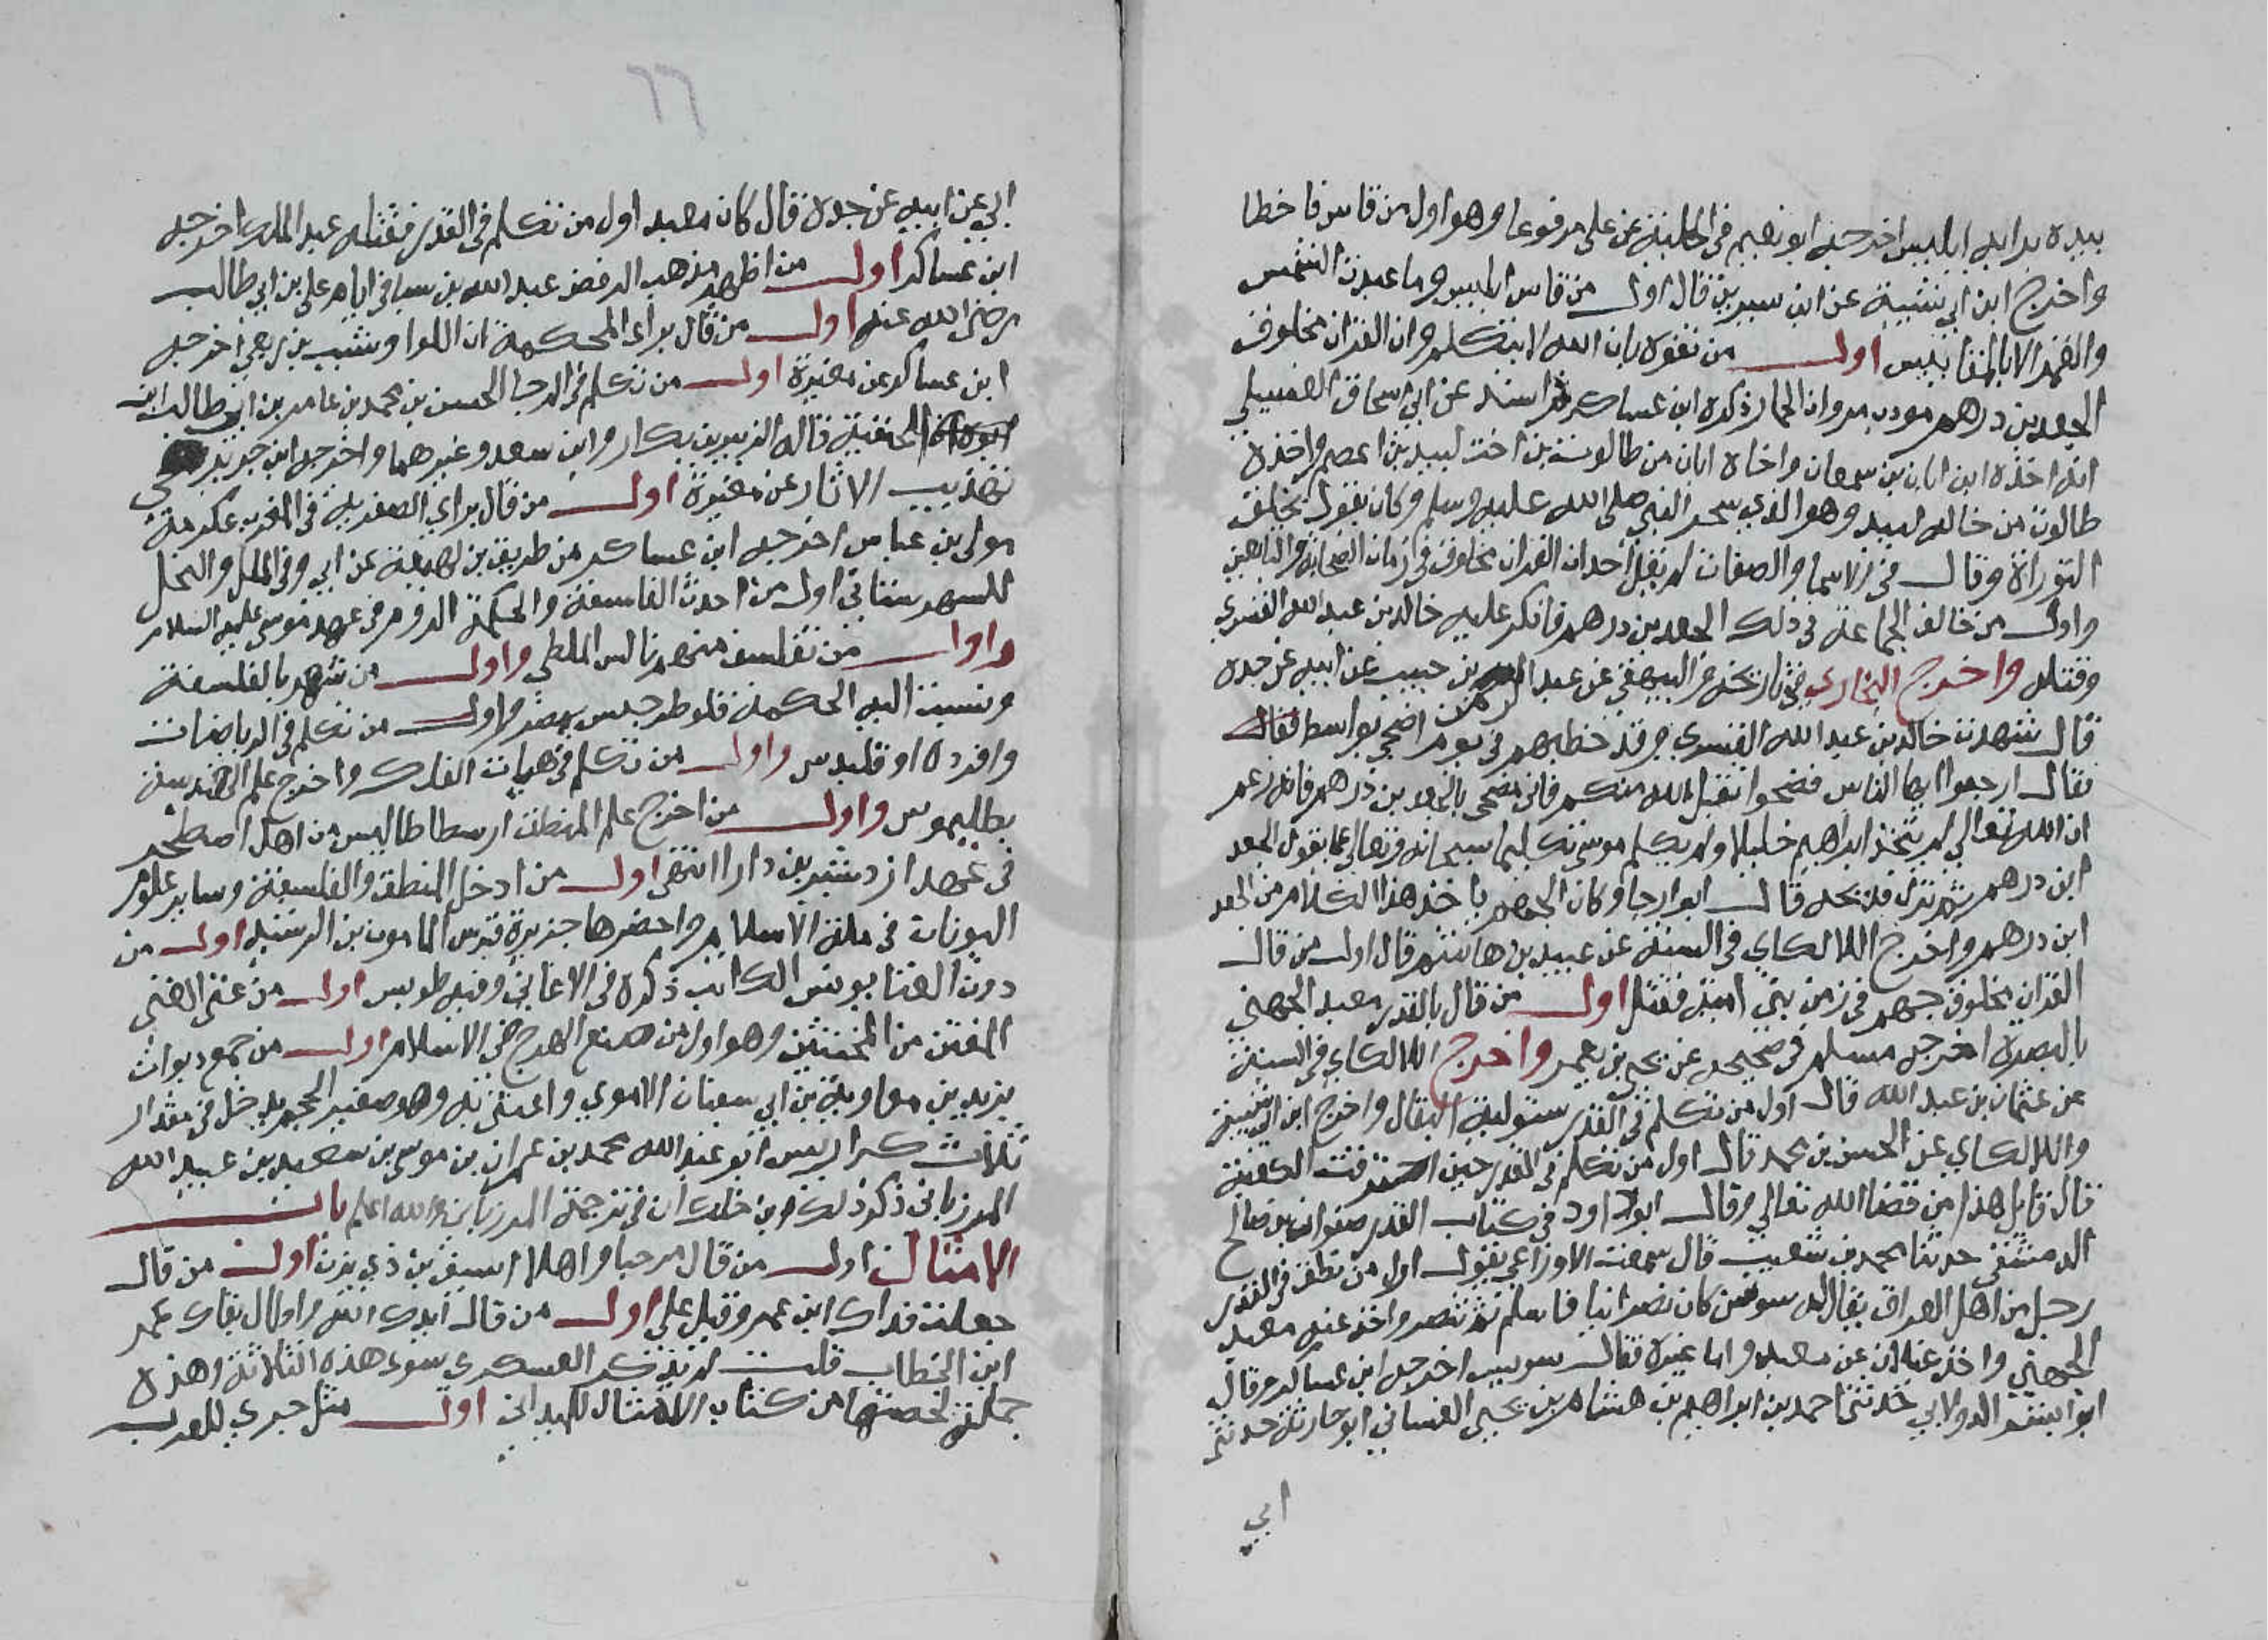 بيده بدا به ابليس اخرجه ابو نعيم في الحلية عن علي مرفوعا وهو اول من قاس فاخطا
واخرج ابن ابي شيبة عن ابن سيرين قال اول من قاس ابليس وما عبدت الشمس
والقمر الا بالمقاييس اول من تفوه بان الله لا يتكلم وان القران مخلوق
الجعد بن درهم مودب مروان الحمار ذكره ابن عساكر واسند عن ابي اسحاق
انه اخذه ابن ابان بن سمعان واخاه ابان من طالوت بن اخت لبيد بن اعصم واخذه
طالوت من خاله لبيد وهو الذي سحر النبي صلى الله عليه وسلم وكان يقول بخلق
التوراة وقال في الاسما والصفات لم يقل احد ان القران مخلوق في زمان الصحابة والتابعين
واول من خالف الجماعة في ذلك الجعد بن درهم فانكر عليه خالد بن عبد الله القسري
وقتله واخرج البخاري في تاريخه والبيهقي عن عبد الرحمن بن حبيب عن ابيه عن جده
قال شهدت خالد بن عبد الله القسري وقد خطبهم في يوم اضحى بواسط فقال
فقال ارجعوا ايها الناس فضحوا تقبل الله منكم فاني مضحي بالجعد بن درهم فانه زعم
ان الله تعالى لم يتخذ ابراهيم خليلا ولم يكلم موسى تكليما سبحانه وتعالى عما يقول الجعد
ابن درهم ثم نزل فذبحه قال ابو رجا وكان الجهم ياخذ هذا الكلام من الجعد
ابن درهم واخرج اللالكاي في السنة عن عبيد بن هاشم قال اول من قال
القران مخلوق جهم في زمن بني امية فقتل اول من قال بالقدر معبد الجهني
بالبصرة اخرجه مسلم في صحيحه عن يحيى بن يعمر واخرج اللالكاي في السنة
عن عثمان بن عبد الله قال اول من تكلم في القدر البقال واخرج ابن ابي شيبة
واللالكاي عن الحسن بن محمد قال اول من تكلم في القدر حين احترقت الكعبة
قال قايل هذا من قضا الله تعالى وقال ابو داود في كتاب القدر صفوان بن صالح
الدمشقي حدثنا محمد بن شعيب قال سمعت الاوزاعي يقول اول من نطق في القدر
رجل من اهل العراق يقال له سوسن كان نصرانيا فاسلم ثم تنصر واخذ عنه معبد
الجهني واخذ غيلان عن معبد واما غيره فقال اخرجه ابن عساكر وقال
ابو بشر الدولابي حدثنا احمد بن ابراهيم بن هشام بن يحيى الغساني ابو حارثة حدثني
ابي
٦٦
ابي عن ابيه عن جده قال كان معبد اول من تكلم في القدر فقتله عبد الملك اخرجه
ابن عساكر اول من اظهر مذهب الرفض عبد الله بن سبا في ايام علي بن ابي طالب
رضي الله عنه اول من قال براي المحكمة ابن الكوا وشبيب بن ربعي اخرجه
ابن عساكر عن مغيرة اول من تكلم في الارجا الحسن بن محمد بن علي بن ابي طالب ابن
الحنفية قاله الزبير بن بكار وابن سعد وغيرهما واخرجه ابن جرير في
تهذيب الاثار عن مغيرة اول من قال براي الصفرية في المغرب عكرمة
مولى بن عباس اخرجه ابن عساكر من طريق بن لهيعة عن ابي وفي الملل والنحل
للشهرستاني اول من احدث الفلسفة والحكمة الروم في عهد موسى عليه السلام
واول من تفلسف منهم تاليس الملطي واول من شهر بالفلسفة
ونسبت اليه الحكمة فلوطرخيس بمصر واول من تكلم في الرياضات
وافرده اوقليدس واول من تكلم في هيات الفلك واخرج علم الهندسة
بطليموس واول من اخرج علم المنطق ارسطاطاليس من اهل اصطخر
في عهد ازدشير بن دارا انتهى اول من ادخل المنطق والفلسفة وساير علوم
اليونان في ملة الاسلام واحضرها جزيرة قبرس المامون بن الرشيد اول من
دون الغنا يونس الكاتب ذكره في الاغاني وفيه طويس اول من غنى الغنى
المتقن من المخنثين وهو اول من صنع الهزج في الاسلام اول من جمع ديوان
يزيد بن معاوية بن ابي سفيان الاموي واعتنى به وهو صغير الحجم يدخل في مقدار
ثلاث كراريس ابو عبد الله محمد بن عمران بن موسى بن سعيد بن عبيد الله
المرزباني ذكر ذلك ابن خلكان في ترجمة المرزباني والله اعلم باب
الامثال اول من قال مرحبا واهلا سيف بن ذي يزن اول من قال
جعلت فداك ابن عمر وقيل علي اول من قال ايدك الله واطال بقاك عمر
ابن الخطاب قلت لم يذكر العسكري سوى هذه الثلاثة وهذه
جملة لخصتها من كتاب الامثال للميداني اول مثل جرى للعرب